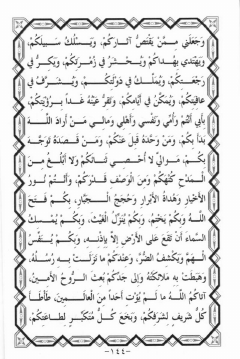 وَجَعَلَنِي مِمَّنْ يَقْتَصُّ آثَارَكُمْ، وَيَسْلُكُ سَبِيلَكُمْ،
وَيَهْتَدِي بِهُدَاكُمْ وَيُحْشَرُ فِي زُمْرَتِكُمْ، وَيَكُرُّ فِي
رَجْعَتِكُمْ، وَيُمَلَّكُ فِي دَوْلَتِكُمْ، وَيُشَرَّفُ فِي
عَافِيَتِكُمْ، وَيُمَكَّنُ فِي أَيَّامِكُمْ، وَتَقَرُّ عَيْنُهُ غَداً بِرُؤْيَتِكُمْ،
بِأَبِي أَنْتُمْ وَأُمِّي وَنَفْسِي وَأَهْلِي وَمَالِي مَنْ أَرَادَ اللَّهَ
بَدَأَ بِكُمْ، وَمَنْ وَحَّدَهُ قَبِلَ عَنْكُمْ، وَمَنْ قَصَدَهُ تَوَجَّهَ
بِكُمْ، مَوَالِيَّ لَا أُحْصِي ثَنَاءَكُمْ وَلَا أَبْلُغُ مِنَ
الْمَدْحِ كُنْهَكُمْ وَمِنَ الْوَصْفِ قَدْرَكُمْ، وَأَنْتُمْ نُورُ
الْأَخْيَارِ وَهُدَاةُ الْأَبْرَارِ وَحُجَجُ الْجَبَّارِ، بِكُمْ فَتَحَ
اللَّهُ وَبِكُمْ يَخْتِمُ، وَبِكُمْ يُنَزِّلُ الْغَيْثَ، وَبِكُمْ يُمْسِكُ
السَّمَاءَ أَنْ تَقَعَ عَلَى الْأَرْضِ إِلَّا بِإِذْنِهِ، وَبِكُمْ يُنَفِّسُ
الْهَمَّ وَيَكْشِفُ الضُّرَّ، وَعِنْدَكُمْ مَا نَزَلَتْ بِهِ رُسُلُهُ،
وَهَبَطَتْ بِهِ مَلَائِكَتُهُ وَإِلَى جَدِّكُمْ بُعِثَ الرُّوحُ الْأَمِينُ،
آتَاكُمُ اللَّهُ مَا لَمْ يُؤْتِ أَحَداً مِنَ الْعَالَمِينَ، طَأْطَأَ
كُلُّ شَرِيفٍ لِشَرَفِكُمْ، وَبَخَعَ كُلُّ مُتَكَبِّرٍ لِطَاعَتِكُمْ،
-١٤٤-